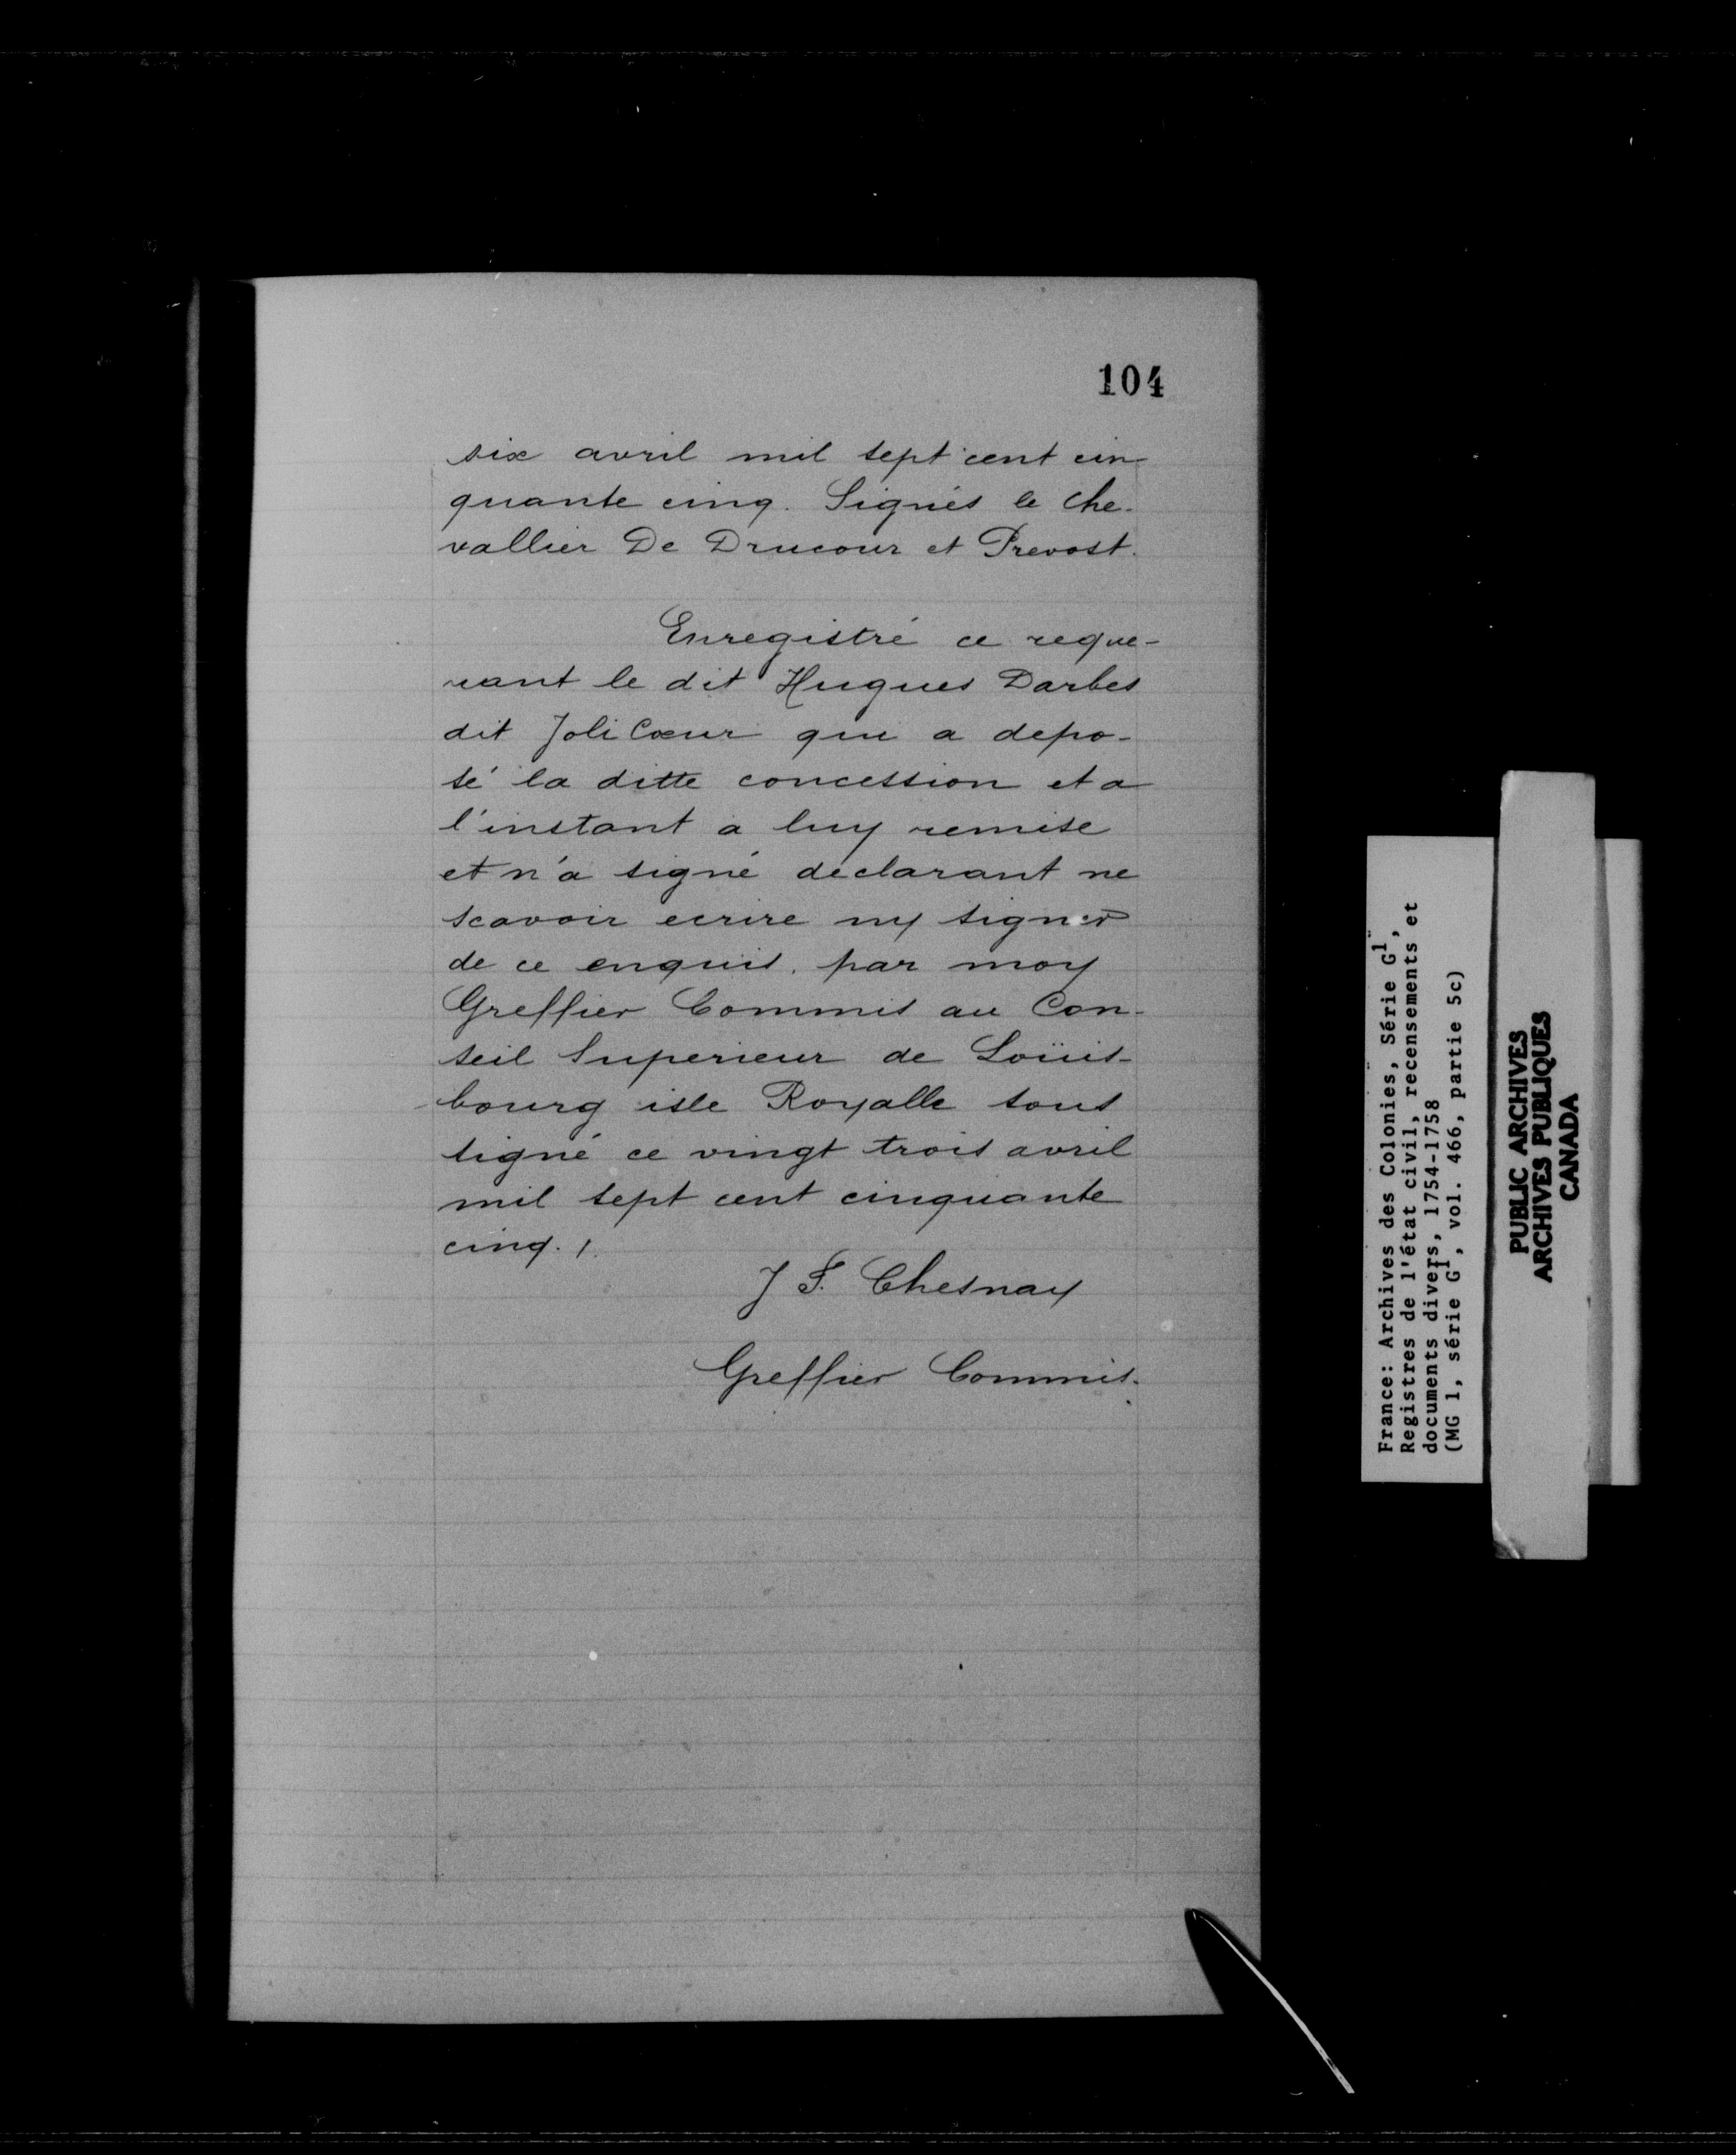 104
six avril mil sept cent cin
quante cinq. Signés le Che-
vallier De Drucour et Prevost.
Enregistré ce reque-
rant le dit Hugues Darbes
dit Joli Cœur qui a depo-
sé la ditte concession et a
l'instant a luy remise
et n'a signé déclarant ne
scavoir ecrire ny signer
de ce enquis. par moy
Greffier Commis au Con-
seil Superieur de Loüis-
bourg isle Royalle sous
signé ce vingt trois avril
mil sept cent cinquante
cinq. /.
J F. Chesnay
Greffier Commis.
France: Archives des Colonies, Série G1,
Registres de l'état civil, recensements et
documents divers, 1754-1758
(MG 1, série G1, vol. 466, partie 5c)
PUBLIC ARCHIVES
ARCHIVES PUBLIQUES
CANADA